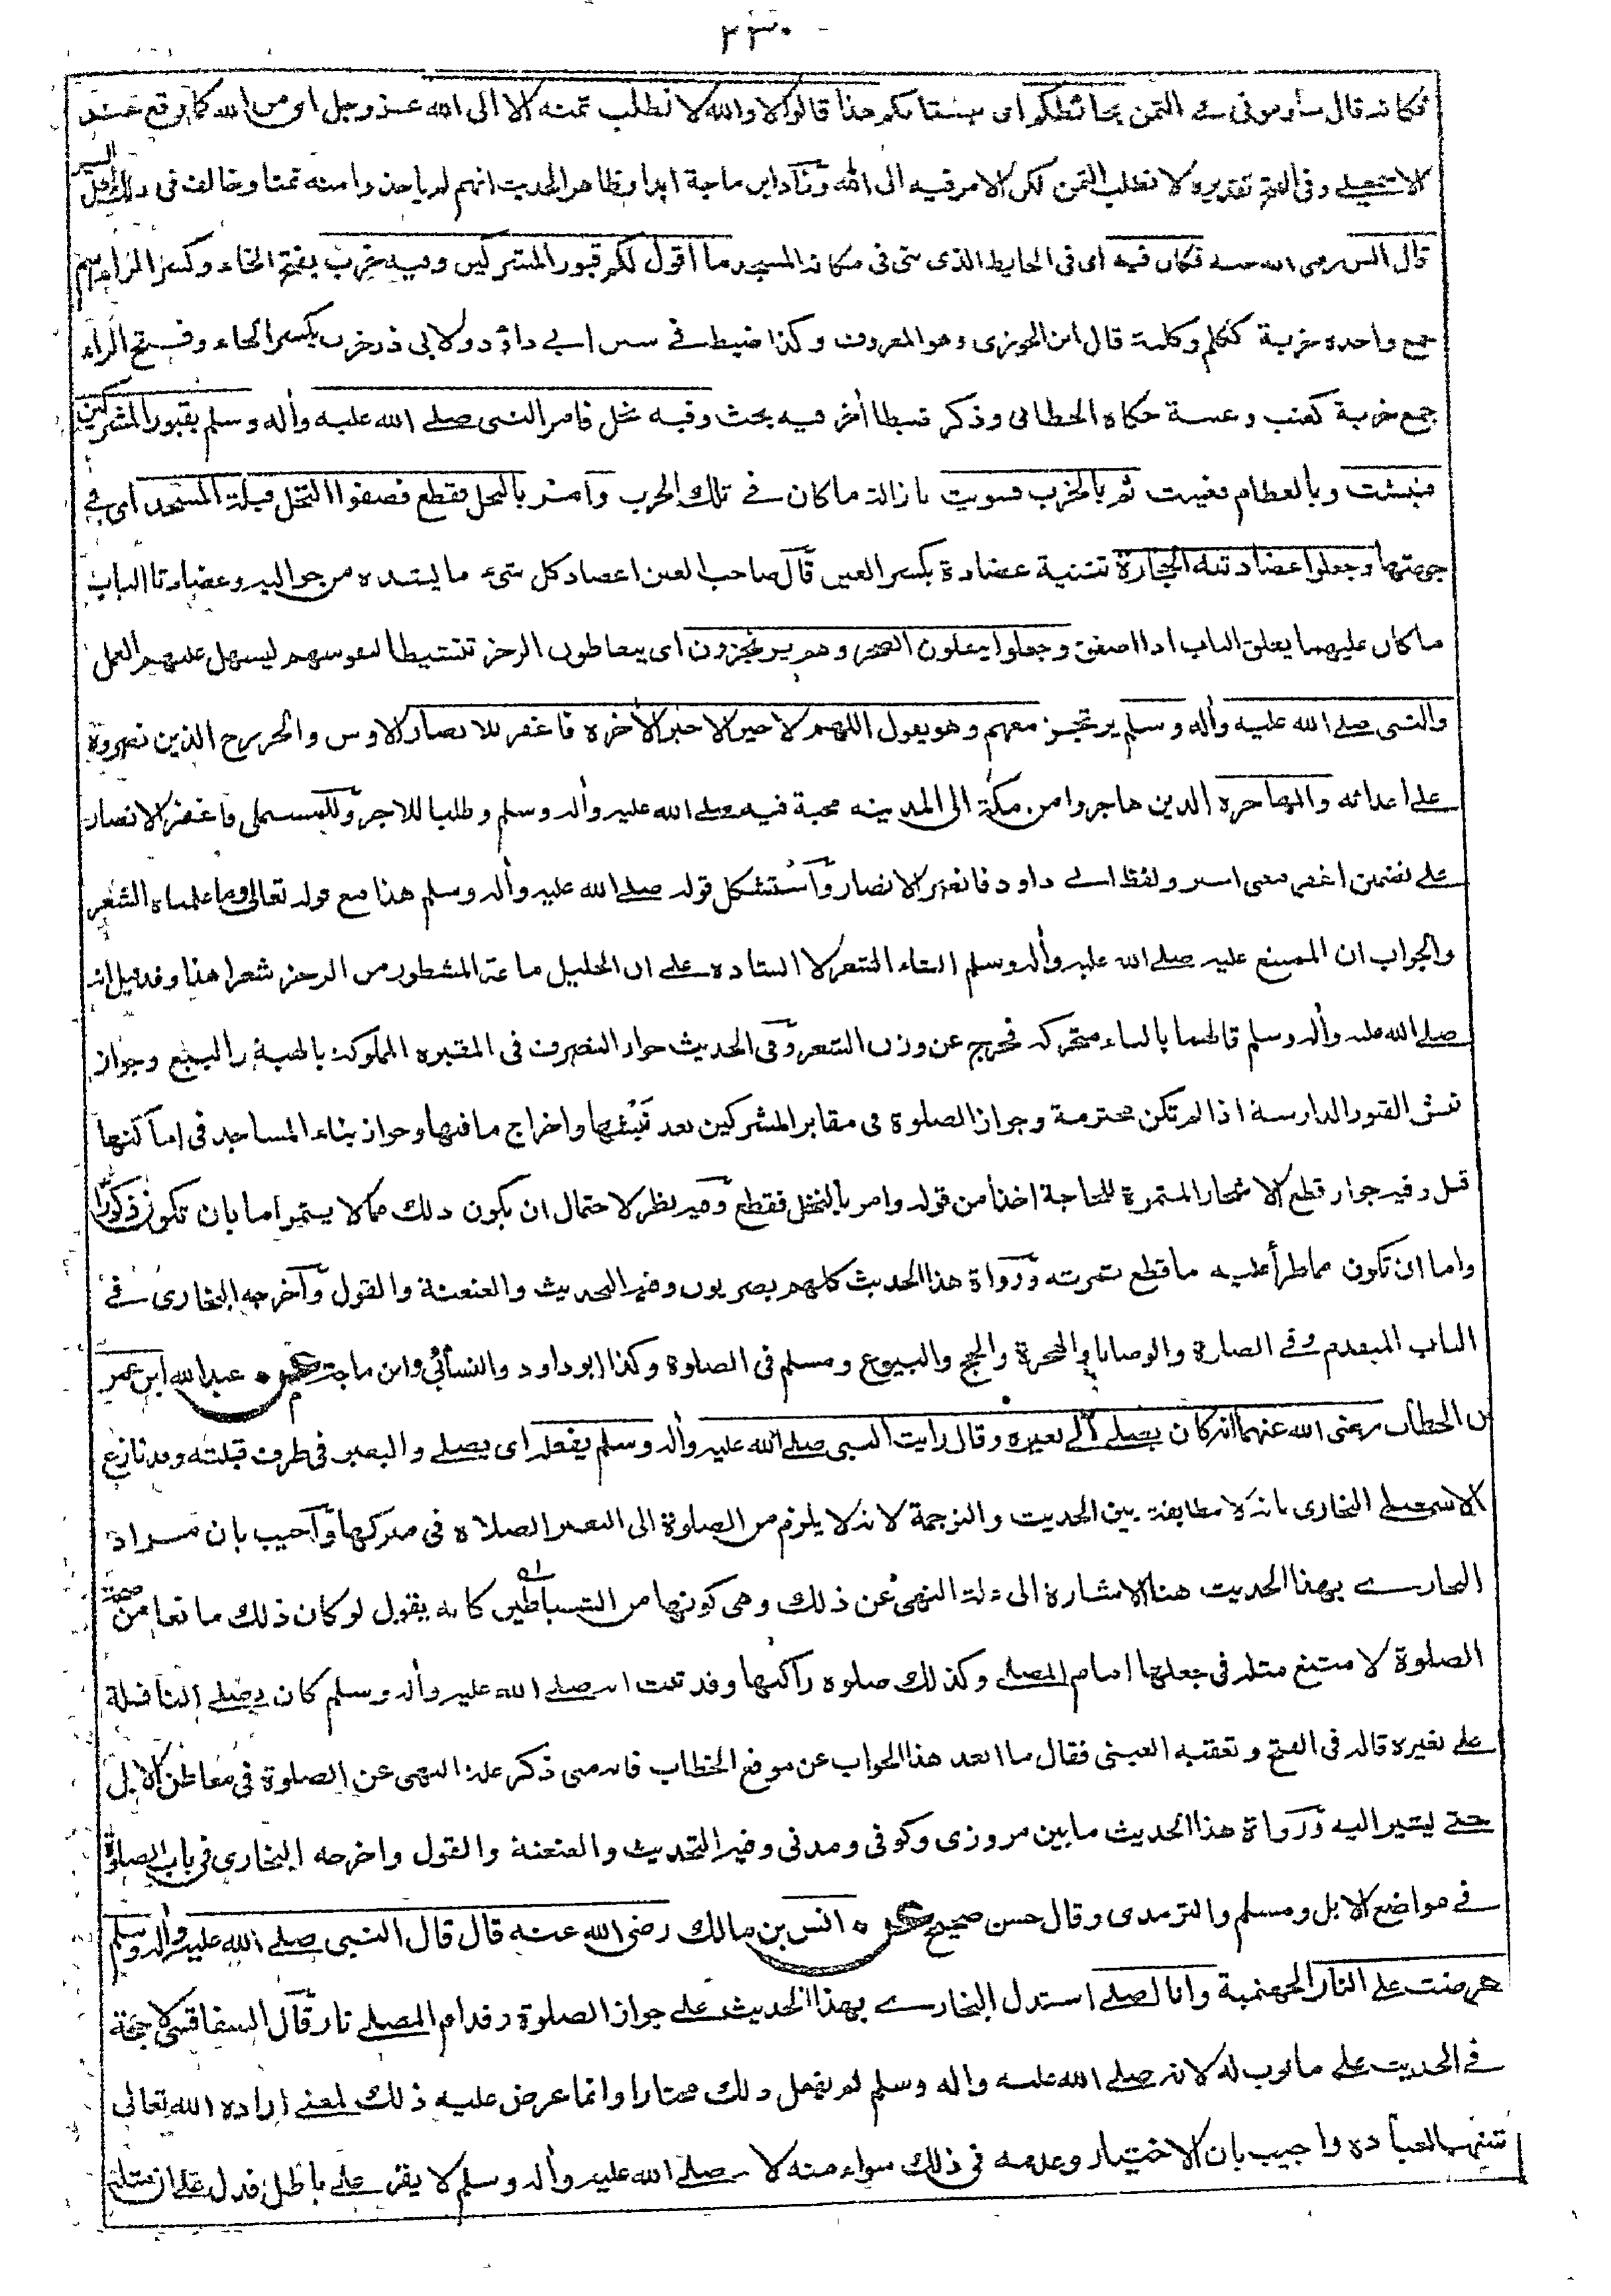 ٢٣٠
فكانه قال ساوموني في الثمن بحائطكم اى ببستانكم هذا قالوا لا والله لا نطلب ثمنه الا الى الله عز وجل اى من الله كما وقع عند
الاسمعيلى وفى الفتح تقديره لا نطلب الثمن لكن الامر فيه الى الله وزاد ابن ماجة ابدا وظاهر الحديث انهم لم ياخذوا منه ثمنا وخالف فى ذلك اهل السير
قال انس رضى الله عنه فكان فيه اى فى الحايط الذى بنى فى مكانه المسجد ما اقول لكم قبور المشركين وفيه خرب بفتح الخاء وكسر الراء اسم
جمع واحده خربة ككلم وكلمة قال ابن الجوزى وهو المعروف وكذا ضبط فى سنن ابى داؤد ولابى ذر خرب بكسر الخاء وفتح الراء
جمع خربة كعنب وعنبة حكاه الخطابى وذكر ضبطا أخر فيه بحث وفيه نخل فامر النبى صلى الله عليه وأله وسلم بقبور المشركين
فنبشت وبالعظام فغيبت ثم بالخرب فسويت بازالة ما كان فى تلك الخرب وامر بالنخل فقطع فصفوا النخل قبلة المسجد اى فى
جهتها وجعلوا عضادتيه الحجارة تثنية عضادة بكسر العين قال صاحب العين اعضاد كل شىء ما يشده من حواليه وعضادتا الباب
ما كان عليهما يغلق الباب اذا اصفق وجعلوا ينقلون الصخر وهم يرتجزون اى يتعاطون الرجز تنشيطا لنفوسهم ليسهل عليهم العمل
والنبى صلى الله عليه وأله وسلم يرتجز معهم وهو يقول اللهم لا خير الا خير الأخره فاغفر للانصار الاوس والخزرج الذين نصروه
على اعدائه والمهاجره الذين هاجروا من مكة الى المدينه محبة فيه صلى الله عليه وأله وسلم وطلبا للاجر وللمستملى فاغفر الانصار
على تضمين اغفر معنى استر ولفظ ابى داود فانصر الانصار واستشكل قوله صلى الله عليه وأله وسلم هذا مع قوله تعالى وما علمناه الشعر
والجواب ان الممتنع عليه صلى الله عليه وأله وسلم انشاء الشعر لا انشاده على ان الخليل ما عد المشطور من الرجز شعرا هذا وقد قيل انه
صلى الله عليه وأله وسلم قالهما بالتاء متحركه فخرج عن وزن الشعر وفى الحديث جواز التصرف فى المقبره المملوكة بالهبة والبيع وجواز
نبش القبور الدارسة اذا لم تكن محترمة وجواز الصلوة فى مقابر المشركين بعد نبشها واخراج ما فيها وجواز بناء المساجد فى اماكنها
قيل وفيه جواز قطع الاشجار المثمرة للحاجة اخذا من قوله وامر بالنخل فقطع وفيه نظر لاحتمال ان يكون ذلك مما لا يثمر اما بان تكون ذكورا
واما ان تكون مما طرأ عليه ما قطع ثمرته ورواة هذا الحديث كلهم بصريون وفيه التحديث والعنعنة والقول وأخرجه البخارى فى
الباب المتقدم وفى الصلوة والوصايا والهجرة والحج والبيوع ومسلم فى الصلوة وكذا ابو داود والنسائى وابن ماجة عن عبد الله ابن عمر
بن الخطاب رضى الله عنهما انه كان يصلى الى بعيره وقال رايت النبى صلى الله عليه وأله وسلم يفعله اى يصلى والبعير فى طرف قبلته وقد نازع
الاسمعيلى البخارى بانه لا مطابقة بين الحديث والترجمة لانه لا يلزم من الصلوة الى البعير الصلاه فى مبركها وأجيب بان مراد
البخارى بهذا الحديث هنا الاشارة الى علة النهى عن ذلك وهى كونها من الشياطين كانه يقول لو كان ذلك مانعا من صحة
الصلوة لامتنع مثله فى جعلها امام المصلى وكذلك صلوه راكبها وقد ثبت انه صلى الله عليه وأله وسلم كان يصلى النافلة
على بعيره قاله فى الفتح وتعقبه العينى فقال ما ابعد هذا الجواب عن موقع الخطاب فانه متى ذكر علة النهى عن الصلوة فى معاطن الابل
حتى يشير اليه ورواة هذا الحديث ما بين مروزى وكوفى ومدنى وفيه التحديث والعنعنة والقول واخرجه البخارى فى باب الصلوة
فى مواضع الابل ومسلم والترمذى وقال حسن صحيح عن انس بن مالك رضى الله عنه قال قال النبى صلى الله عليه وأله وسلم
عرضت على النار الجهنمية وانا اصلى استدل البخارى بهذا الحديث على جواز الصلوة وقدام المصلى نار قال السفاقسى لا حجة
فى الحديث على ما بوب له لانه صلى الله عليه واله وسلم لم يفعل ذلك مختارا وانما عرض عليه ذلك لمعنى اراده الله تعالى
تنبيها لعباده واجيب بان الاختيار وعدمه فى ذلك سواء منه لانه صلى الله عليه وأله وسلم لا يقر على باطل فدل على ان مثله